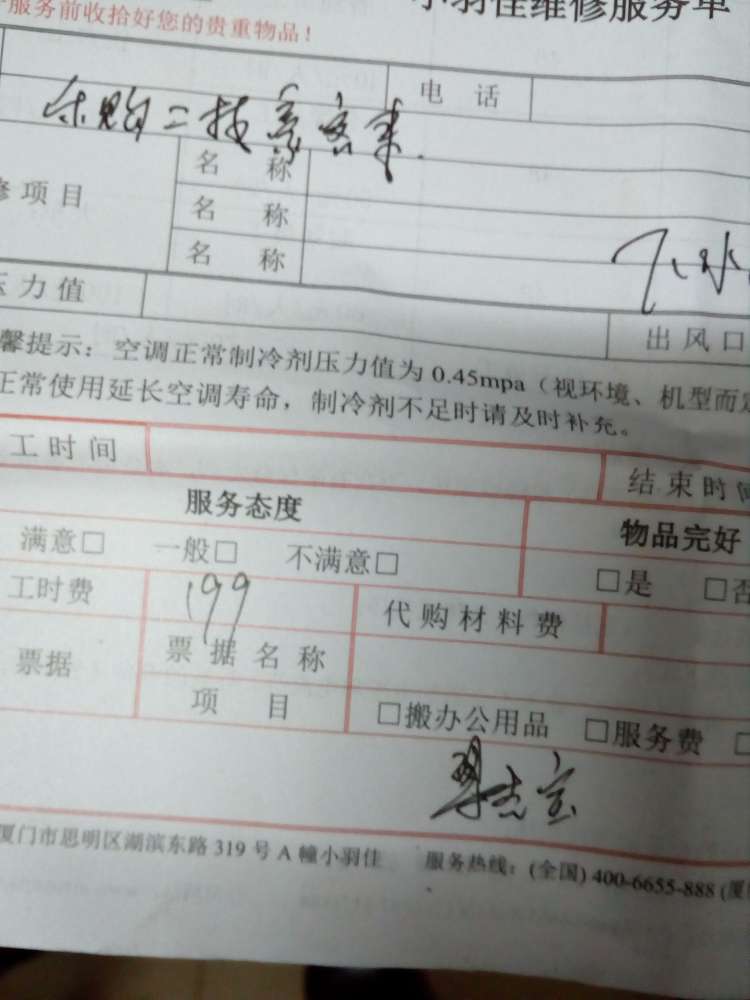 服务前收拾好您的贵重物品！ 小羽佳维修服务单
电 话
名 称
修项目 名 称
名 称
压力值
出风口
馨提示：空调正常制冷剂压力值为 0.45mpa（视环境、机型而定
正常使用延长空调寿命，制冷剂不足时请及时补充。
工时间 结束时间
服务态度 物品完好
满意□ 一般□ 不满意□ □是 □否
工时费 199 代购材料费
票据 票据名称
项 目 □搬办公用品 □服务费 □
厦门市思明区湖滨东路 319 号 A 幢小羽佳 服务热线：(全国) 400-6655-888 (厦